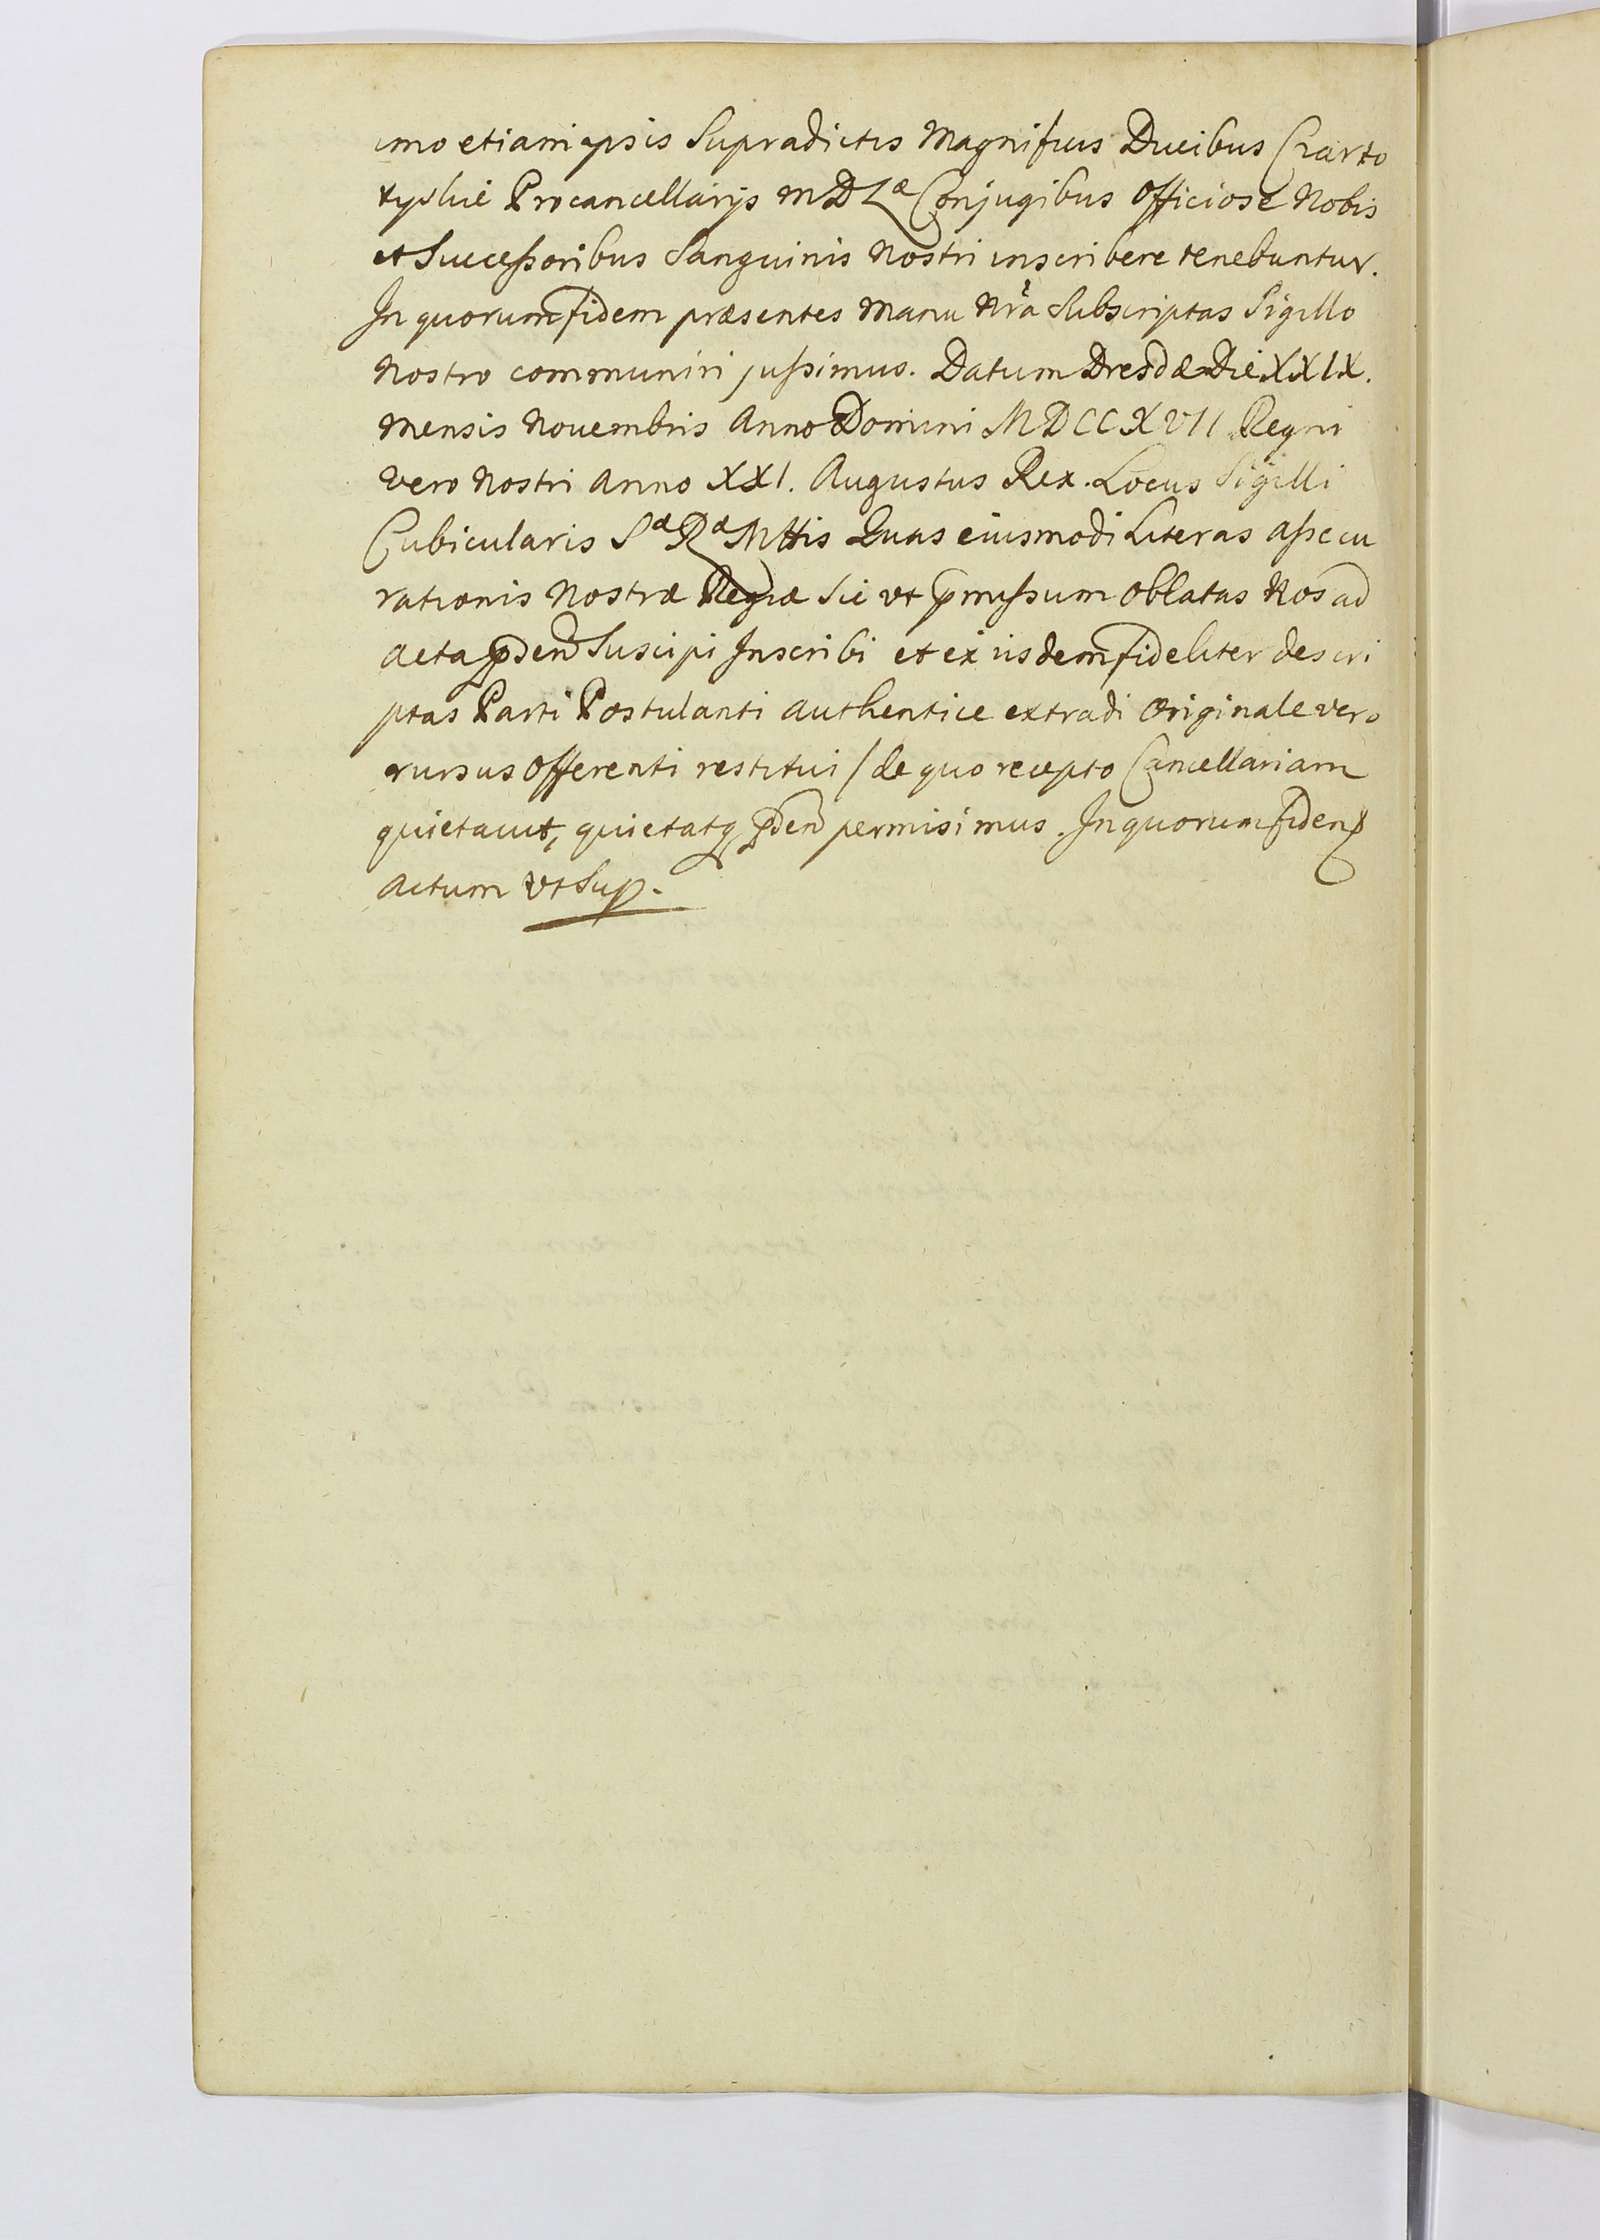 imo etiam ipsis Supradictis Magnificis Ducibus Czarto
ryskie Procancellarijs MDLæ Conjugibus Officiose Nobis
et Successoribus Sanguinis Nostri inscribere tenebuntur.
In quorum fidem præsentes Manu Nrà Subscriptas Sigillo
Nostro communiri jussimus. Datum Dresdæ Die XXIX.
Mensis Nouembris Anno Domini MDCCXVII Regni
vero Nostri Anno XXI. Augustus Rex. Locus Sigilli
Cubicularis Sæ Ræ Mttis Quas eiusmodi Literas Assecu
rationis Nostræ Regiæ Sic vt pmissum Oblatas Nos ad
Acta pden Suscipi Inscribi et ex iisdem fideliter descri
ptas Parti Postulanti authentice extradi Originale vero
rursus Offerenti restitui / de quo recepto Cancellariam
quietauit, quietatq pden permisimus. In quorum fidem
Actum vt Sup.